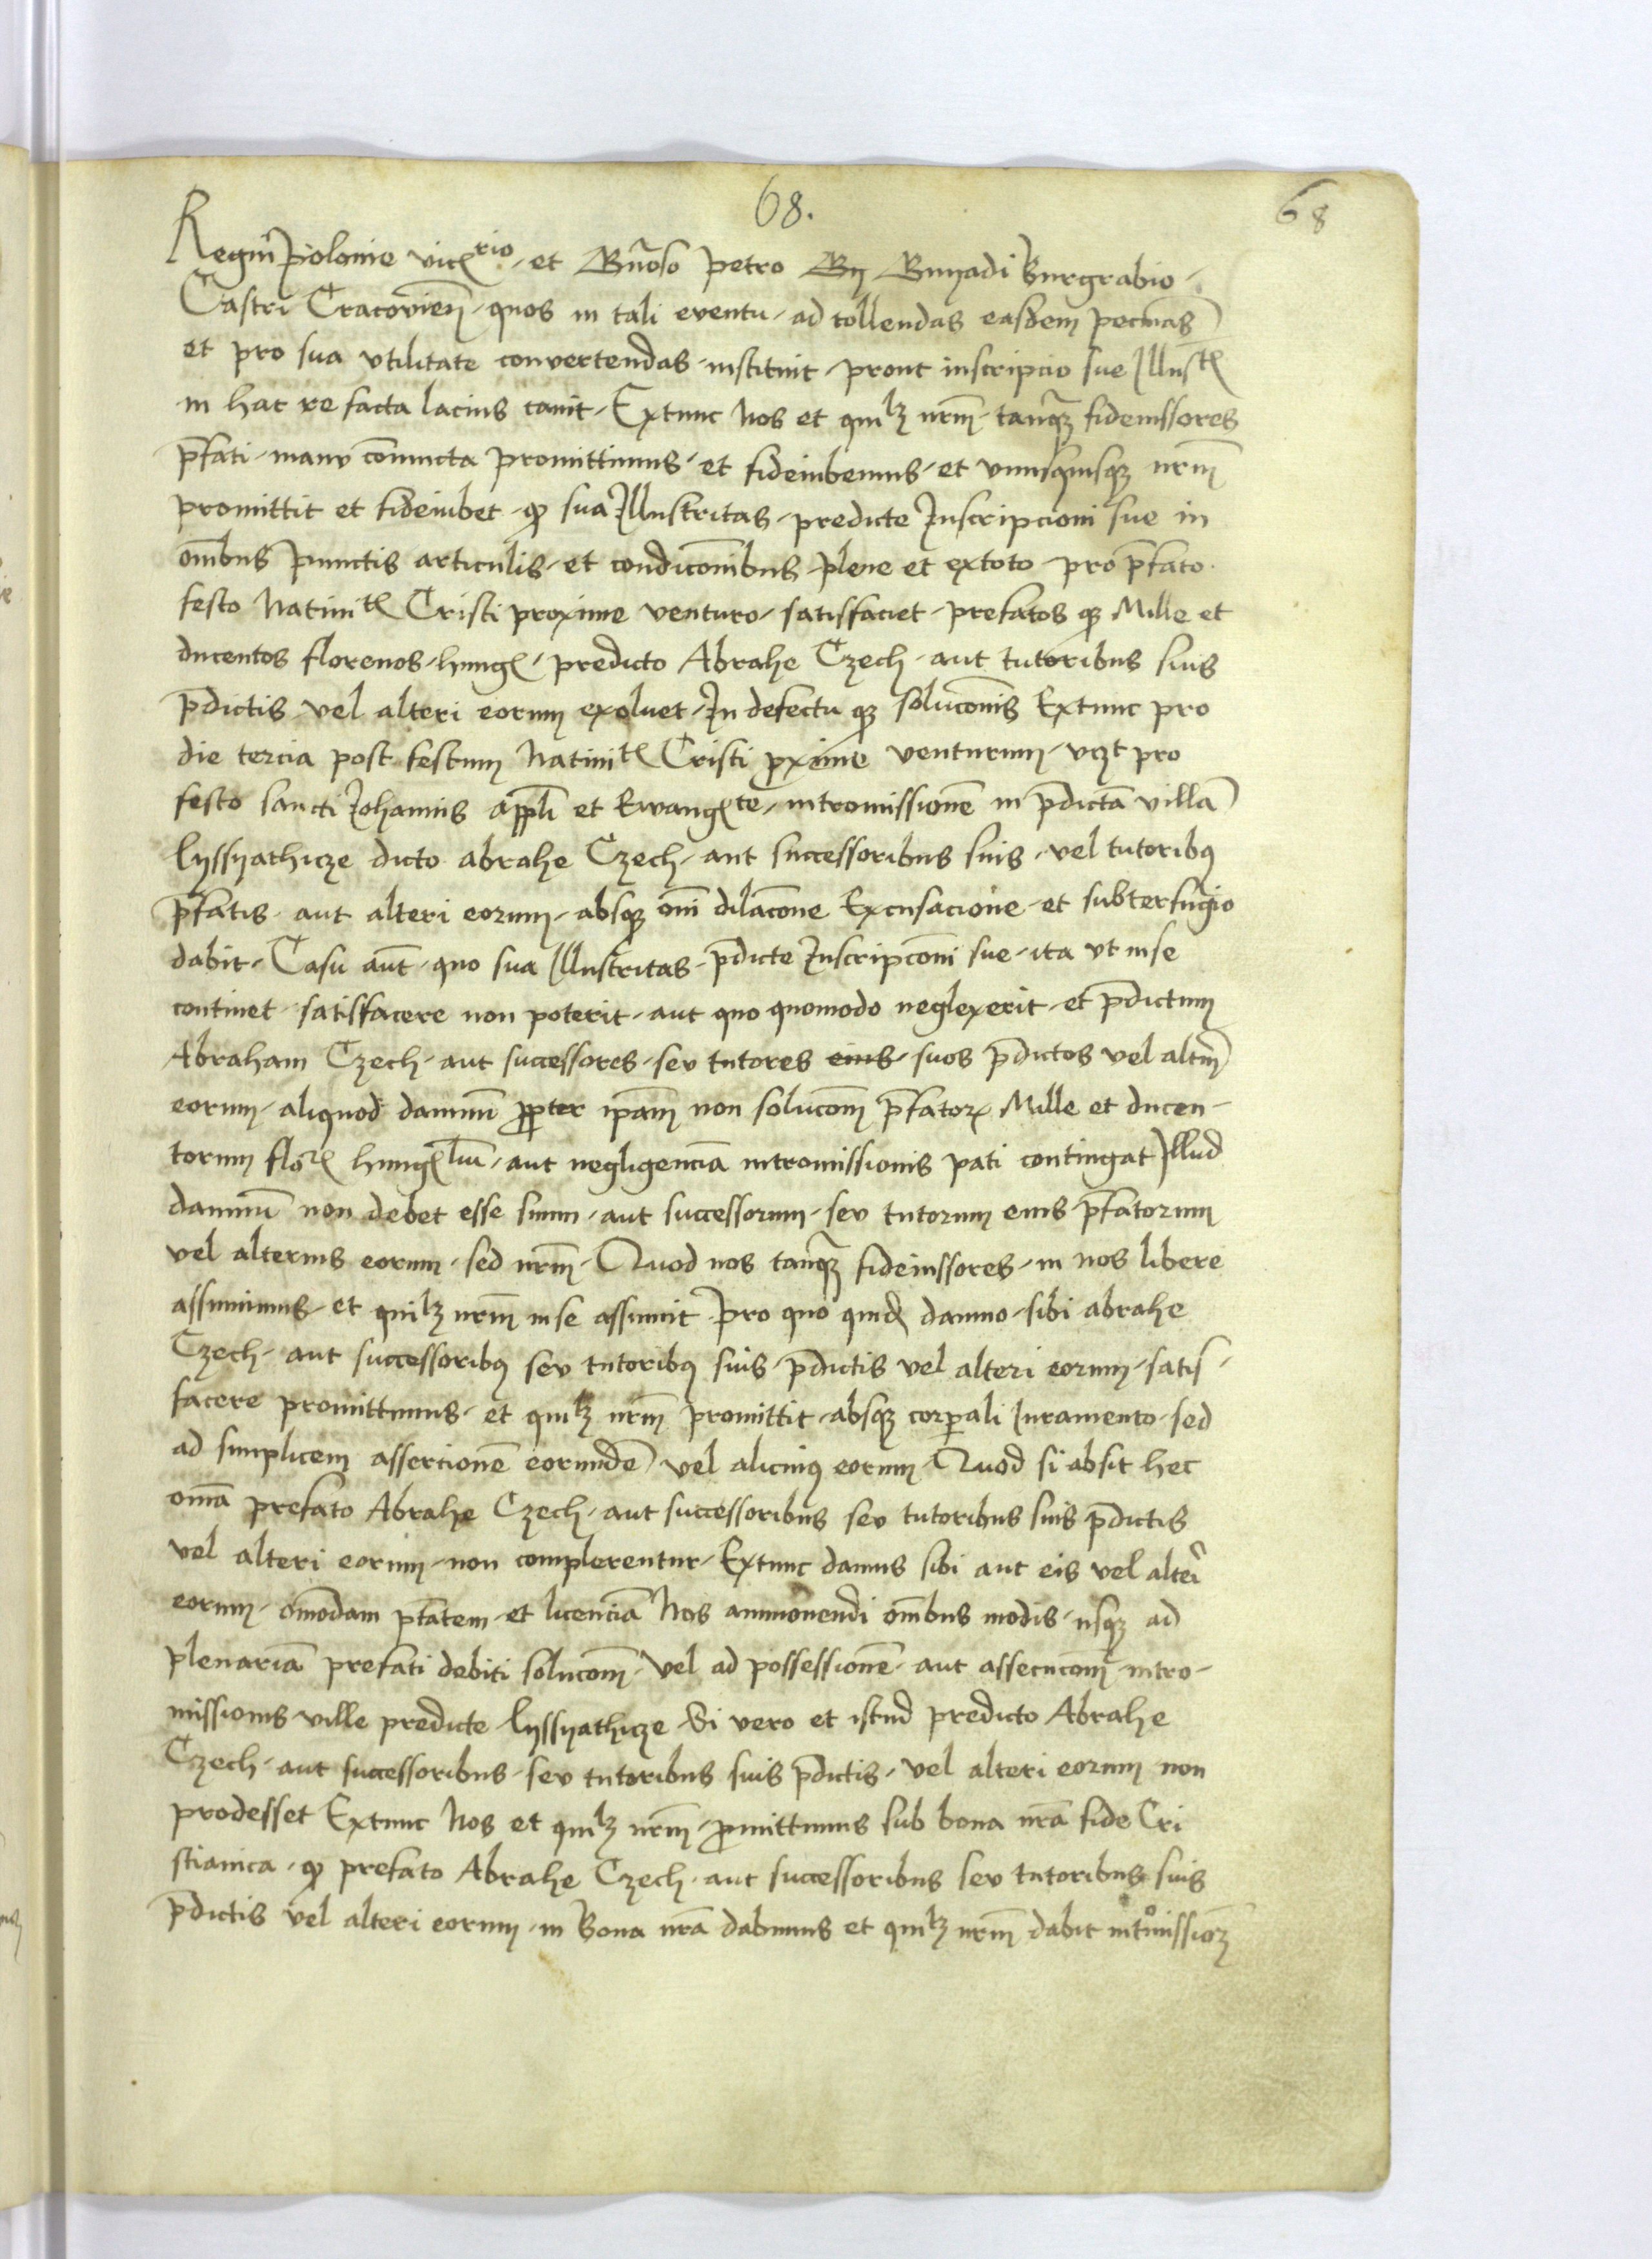 68.
68
Regnĩ Polonie vicꝭrio et Gñoso Petro Bnyadi Burgrabio
Castri Cracovieñ quos in tali eventu ad tollendas easdem pecunias
et pro sua vtilitate convertendas instituit prout inscripcio sue Illustꝭ
in hac re facta lacius canit Extunc Nos et quilꝫ nr̄m tanqꝫ fideiussores
p̄fati manv coniuncta promittimus et fideiubemus et vnusquisqꝫ nr̄m
promittit et fideiubet qꝫ sua Illustritas predicte Inscripcioni sue in
om̄ibus punctis articulis et condicōnibus plene et extoto pro p̄fato
festo Natiuitꝭ Cristi proxime venturo satisfaciet prefatos qꝫ Mille et
ducentos florenos hungꝭ predicto Abrahe Czech aut tutoribus suis
p̄dictis vel alteri eorum exoluet In defectu qꝫ solucōnis Extunc pro
die tercia post festum Natiuitꝭ Cristi ꝓxime venturum vꝫt pro
festo sancti Johannis app̄li et Ewangꝭte intromissionē in p̄dictā villā
lyssyathicze dicto abrahe Czech aut successoribus suis vel tutoribꝰ
p̄fatis aut alteri eorum absqꝫ om̄i dilacōne Excusacione et subterfugio
dabit Casu aūt quo sua Illustritas p̄dicte Inscripcōni sue ita vt in se
continet satisfacere non poterit aut quo quomodo neglexerit et p̄dictum
Abraham Czech aut successores sev tutores eius suos p̄dictos vel altm̄
eorum aliquod damnū ꝓpter ip̄am non solucōm p̄fatorꝭ Mille et ducen-
torum florꝭ hungꝭliū aut negligenciā intromissionis pati contingat Illud
damnū non debet esse suum aut successorum sev tutorum eius p̄fatorum
vel alterius eorum sed nr̄m Quod nos tanqꝫ fideiussores in nos libere
assumimus et quilꝫ nr̄m in se assumit Pro quo quidꝭ damno sibi abrahe
Czech aut successoribꝰ sev tutoribꝰ suis p̄dictis vel alteri eorum satis-
facere promittimus et quilꝫ nr̄m promittit absqꝫ corꝑali Iuramento sed
ad simplicem assercionē eorundē vel alicuiꝰ eorum Quod si absit hec
om̄a prefato Abrahe Czech aut successoribus sev tutoribus suis p̄dictis
vel alteri eorum non complerentur Extunc damus sibi aut eis vel alteri
eorum om̄odam ptātem et licenciā Nos ammonendi om̄ibus modis usqꝫ ad
plenariā prefati debiti solucōm vel ad possessionē aut assecucōm intro-
missionis ville predicte lyssyathicze Si vero et istud predicto Abrahe
Czech aut successoribus sev tutoribus suis p̄dictis vel alteri eorum non
prodesset Extunc Nos et quilꝫ nr̄m ꝓmittimus sub bona nr̄a fide Cri
stianica qꝫ prefato Abrahe Czech aut successoribus sev tutoribus suis
p̄dictis vel alteri eorum in Bona nr̄a dabimus et quilꝫ nr̄m dabit intͦmissioꝫ